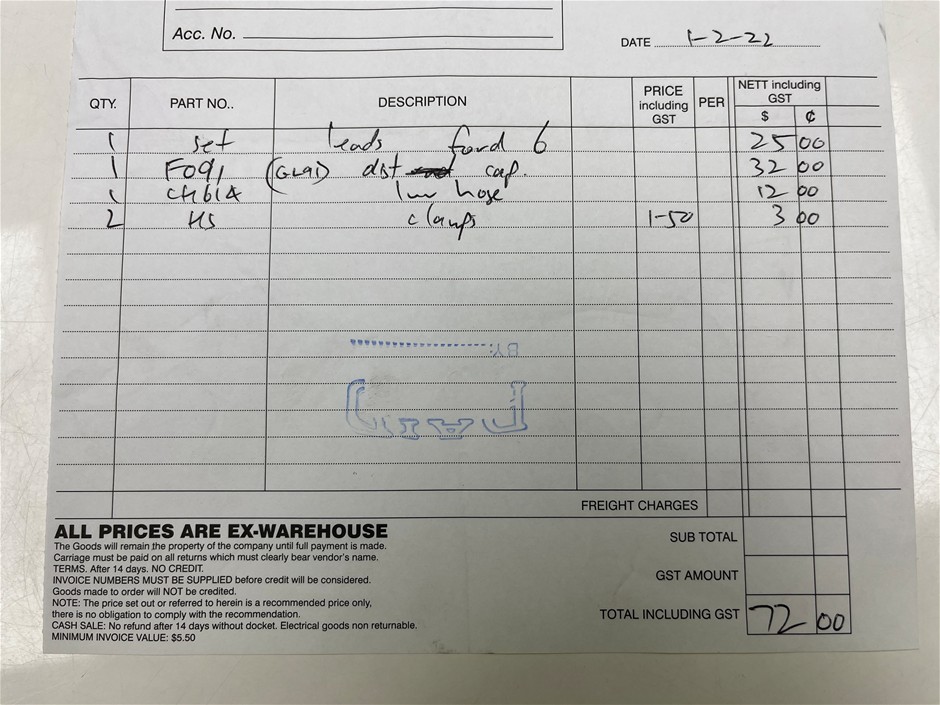 Acc. No.
DATE 1-2-22
QTY. PART NO.. DESCRIPTION PRICE including GST PER NETT including GST
$ ¢
1 set leads ford 6 25 00
1 F091 (GL91) dist cap. 32 00
1 CH614 lwr hose 12 00
2 HS clamps 1-50 3 00
BY:
PAID
FREIGHT CHARGES
ALL PRICES ARE EX-WAREHOUSE
The Goods will remain the property of the company until full payment is made.
Carriage must be paid on all returns which must clearly bear vendor's name.
TERMS. After 14 days. NO CREDIT.
INVOICE NUMBERS MUST BE SUPPLIED before credit will be considered.
Goods made to order will NOT be credited.
NOTE: The price set out or referred to herein is a recommended price only,
there is no obligation to comply with the recommendation.
CASH SALE: No refund after 14 days without docket. Electrical goods non returnable.
MINIMUM INVOICE VALUE: $5.50
SUB TOTAL
GST AMOUNT
TOTAL INCLUDING GST 72 00